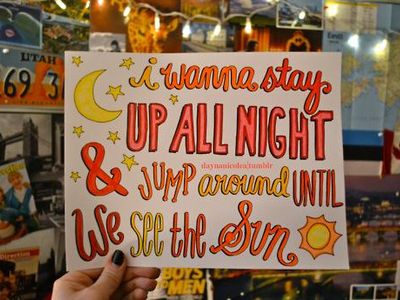 UTAH
69 3
i wanna stay
UP ALL NIGHT
daynanicolea|tumblr
& JUMP around UNTIL
We see the Sun
BOYS
MEN